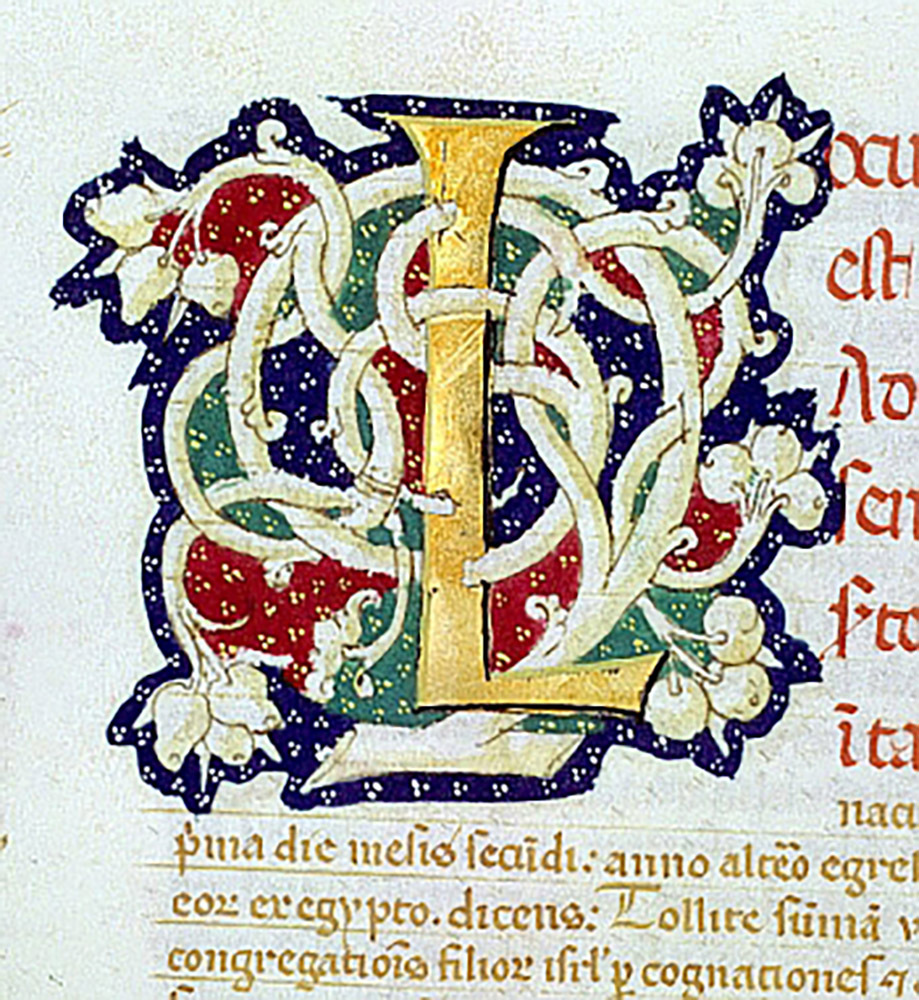 L
ocu
est
do
sci
ita
nac
p̄ma die mesis secūdi: anno altēo egres
eoꝝ ex egypto. dicens: Tollite sūmā v
congregatiōis filioꝝ isrl' ꝑ cognationes ⁊